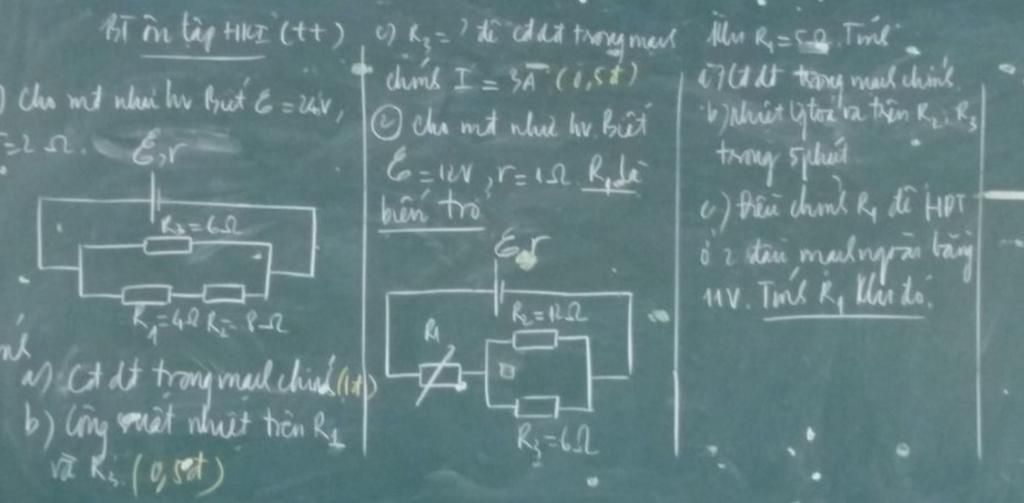 BT ôn tập HKI (tt)
) Cho mđ như hv Biết ℰ = 24V,
=2 Ω.
ℰ,r
=6Ω
R₁=4Ω R₂=8Ω
a) Cđ dđ trong mạch chính (1đ)
b) Công suất nhiệt trên R₁
và R₃. (0,5đ)
c) R₃ = ? để cđdđ trong mạch
chính I = 3A (0,5đ)
② Cho mđ như hv. Biết
ℰ=12V, r=1Ω R₁ là
biến trở
ℰ,r
R₂=12Ω
R₁
R₃=6Ω
Khi R₁=5Ω. Tính
a) Cđ dđ trong mạch chính.
b) Nhiệt lg toả ra trên R₂, R₃
trong 5 phút
c) Điều chỉnh R₁ để HĐT
ở 2 đầu mạch ngoài bằng
11V. Tính R₁ khi đó.